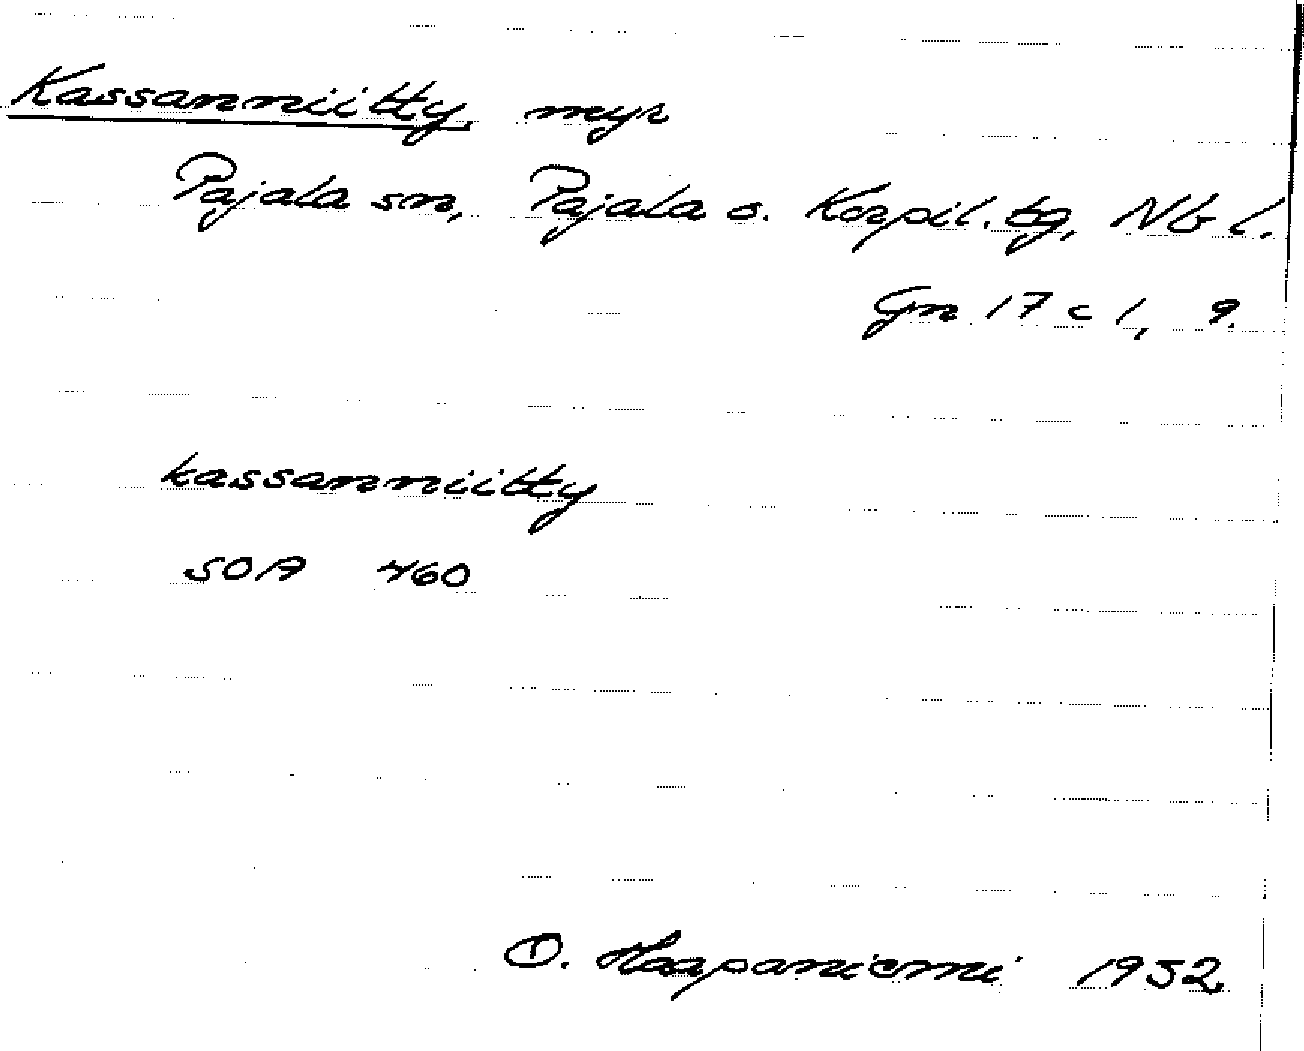 Kassanniitty myr
Pajala sn, Pajala o. Korpil. tg, Nb l.
Gn 17 c 1, 9.
kassanniitty
SOA 460
O. Haapaniemi 1952